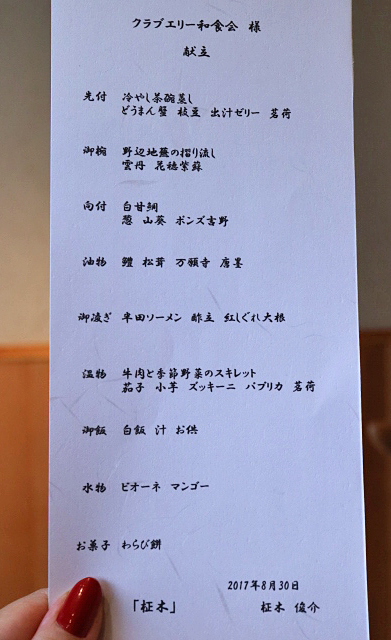 クラブエリー和食会 様
献立
先付 冷やし茶碗蒸し
どうまん蟹 枝豆 出汁ゼリー 茗荷
御椀 野辺地蕪の摺り流し
雲丹 花穂紫蘇
向付 白甘鯛
葱 山葵 ポンズ吉野
油物 鱧 松茸 万願寺 唐墨
御凌ぎ 半田ソーメン 酢立 紅しぐれ大根
温物 牛肉と季節野菜のスキレット
茄子 小芋 ズッキーニ パプリカ 茗荷
御飯 白飯 汁 お供
水物 ピオーネ マンゴー
お菓子 わらび餅
2017年8月30日
「柾木」 柾木 俊介